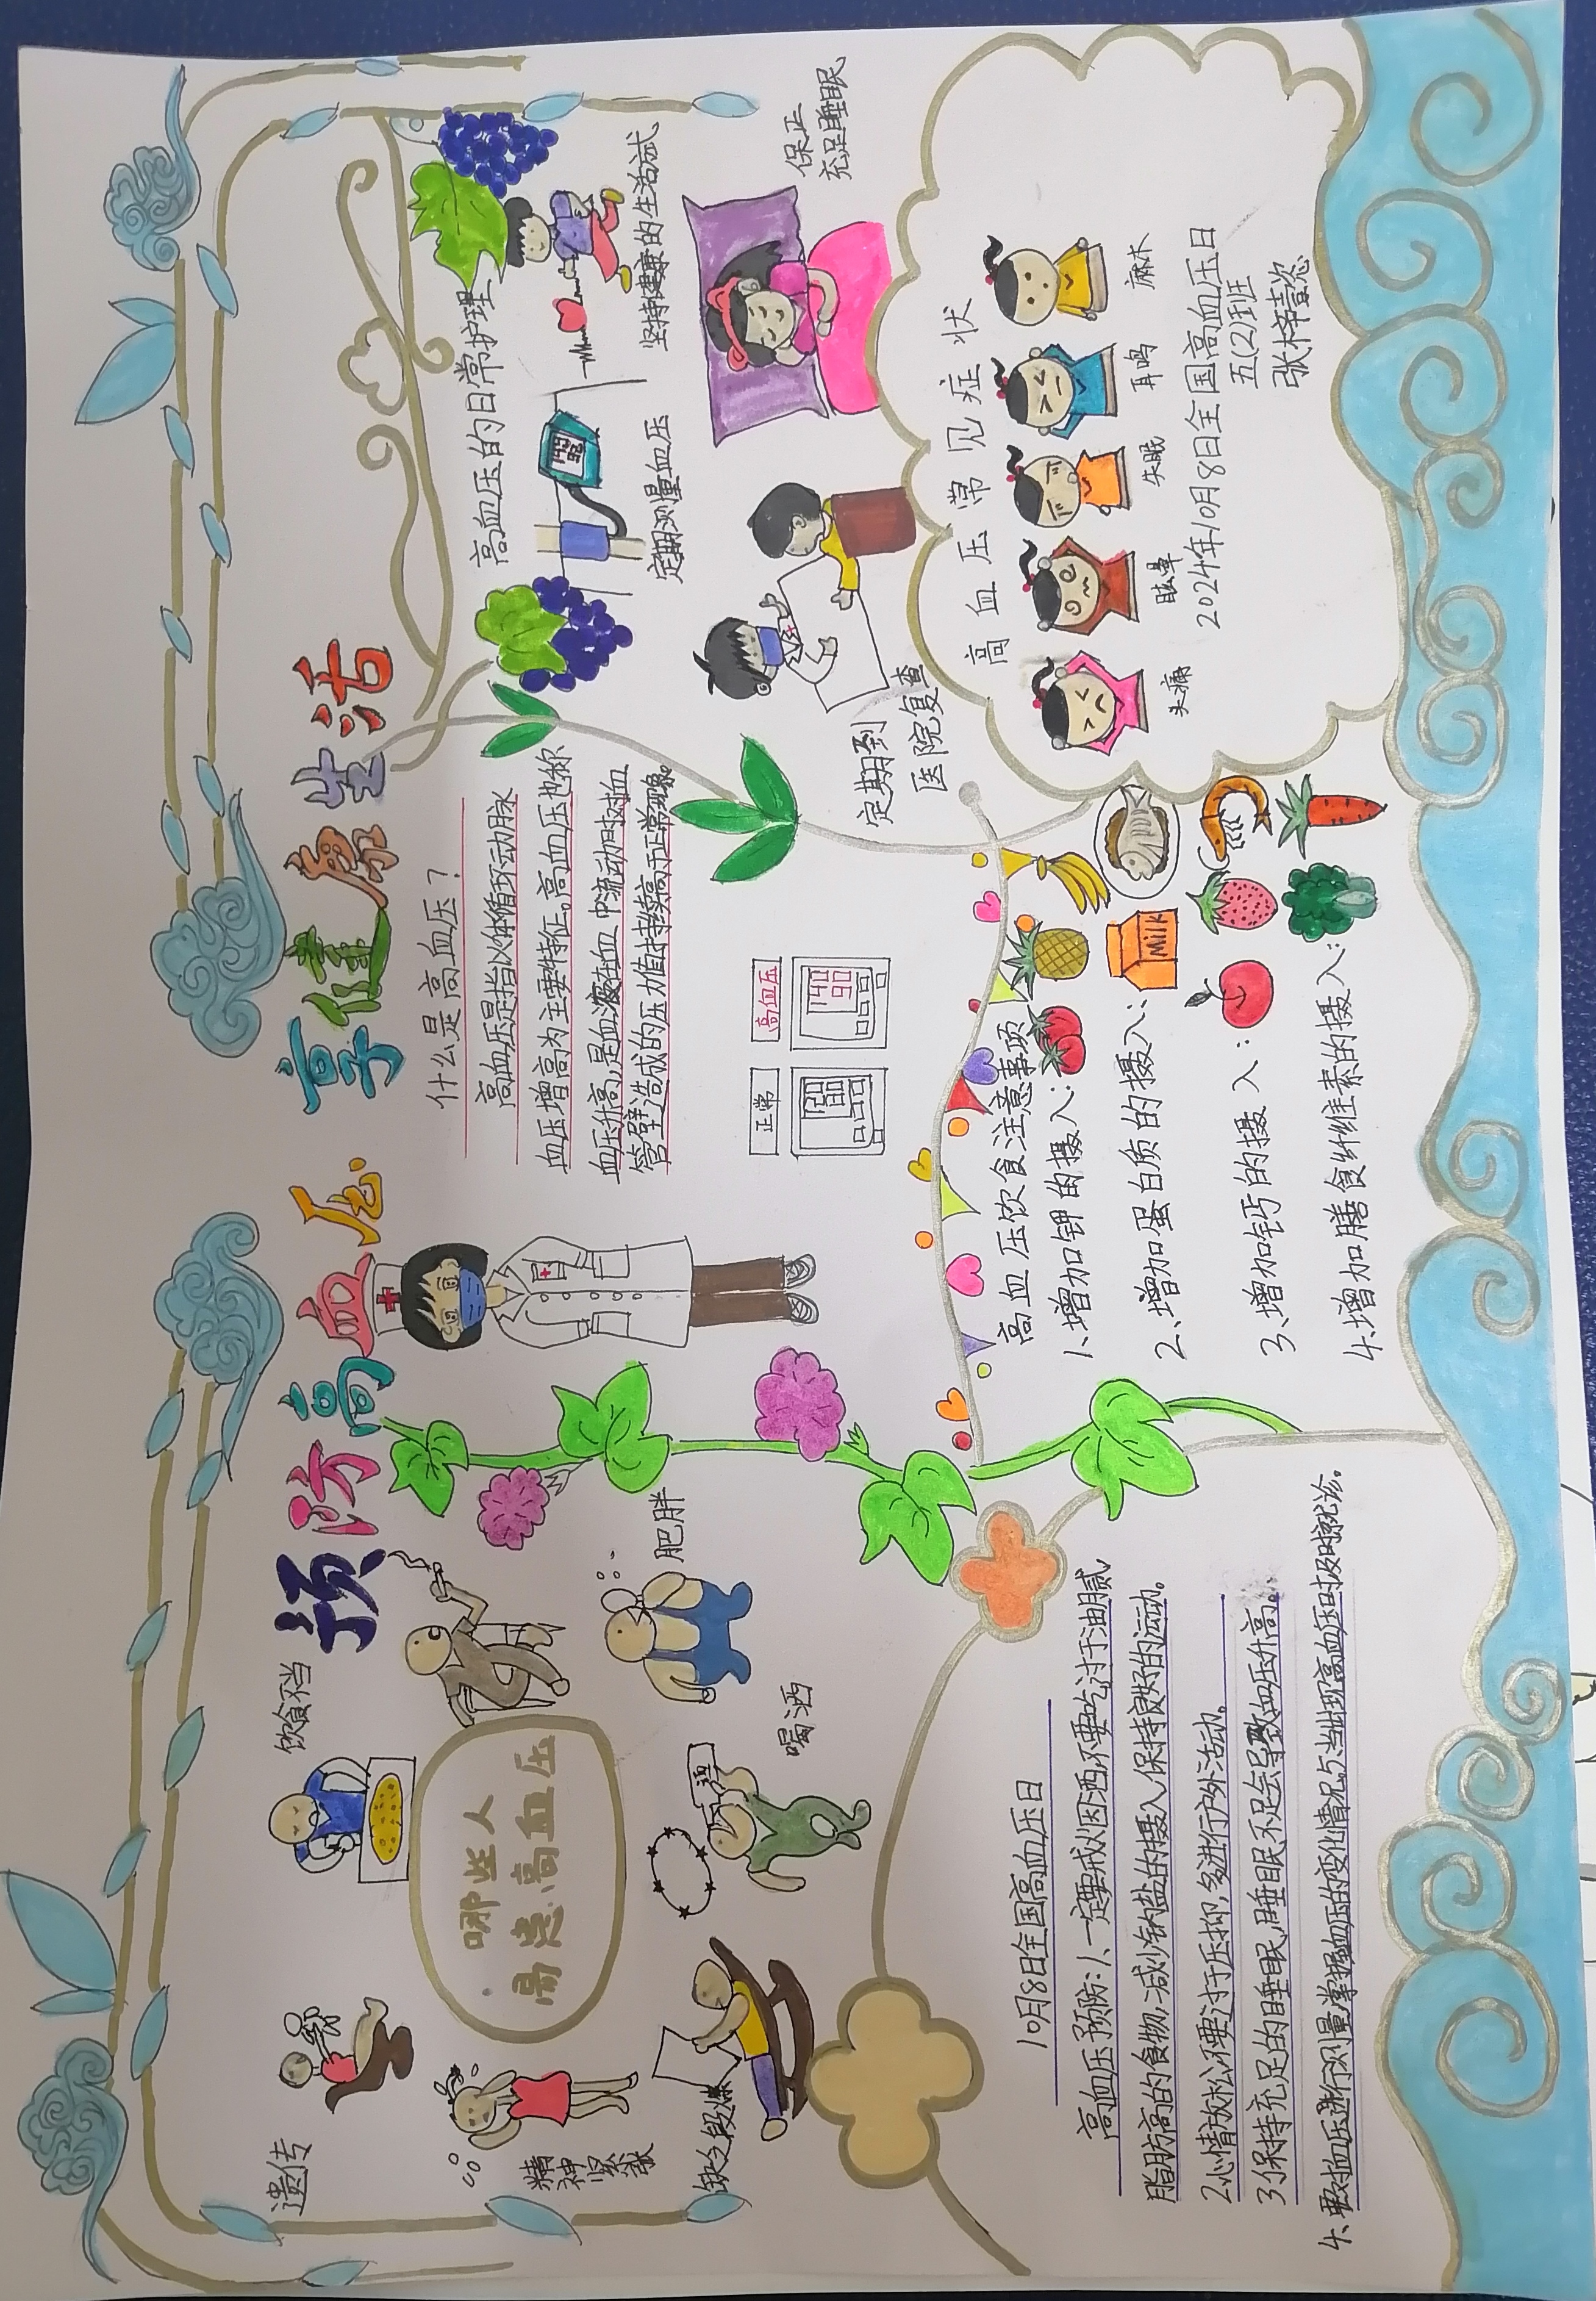 预防高血压
享健康生活
遗传
饮食不当
哪些人
易患高血压
精神紧张
肥胖
缺乏段煉
喝酒
酒
10月8日全国高血压日
高血压预防:1、一定要戒烟酒,不要吃过于油腻
脂肪高的食物,减少钠盐的摄入,保持良好的运动。
2.心情放松,不要过于压抑,多进行户外活动。
3.保持充足的睡眠,睡眠不足会导致血压升高。
4、要对血压进行测量掌握血压的变化情况,5、当出现高血压时及时就诊。
什么是高血压?
高血压是指以体循环动脉
血压增高为主要特征。高血压也称
血压升高,是血液在血中流动时对血
管壁造成的压力值持续高于正常现象。
正常
高血压
120
80
140
90
高血压饮食注意事项
1、增加钾的摄入:
2、增加蛋白质的摄入:
Milk
3、增加钙的摄入:
4、增加膳食纤维素的摄入:
高血压的日常护理
定期测量血压
坚持健康的生活试
定期到
医院复查
保正
充足睡眠
高血压常见症状
头痛
眩晕
失眠
耳鸣
麻木
2024年10月8日全国高血压日
五(2)班
张梓懿